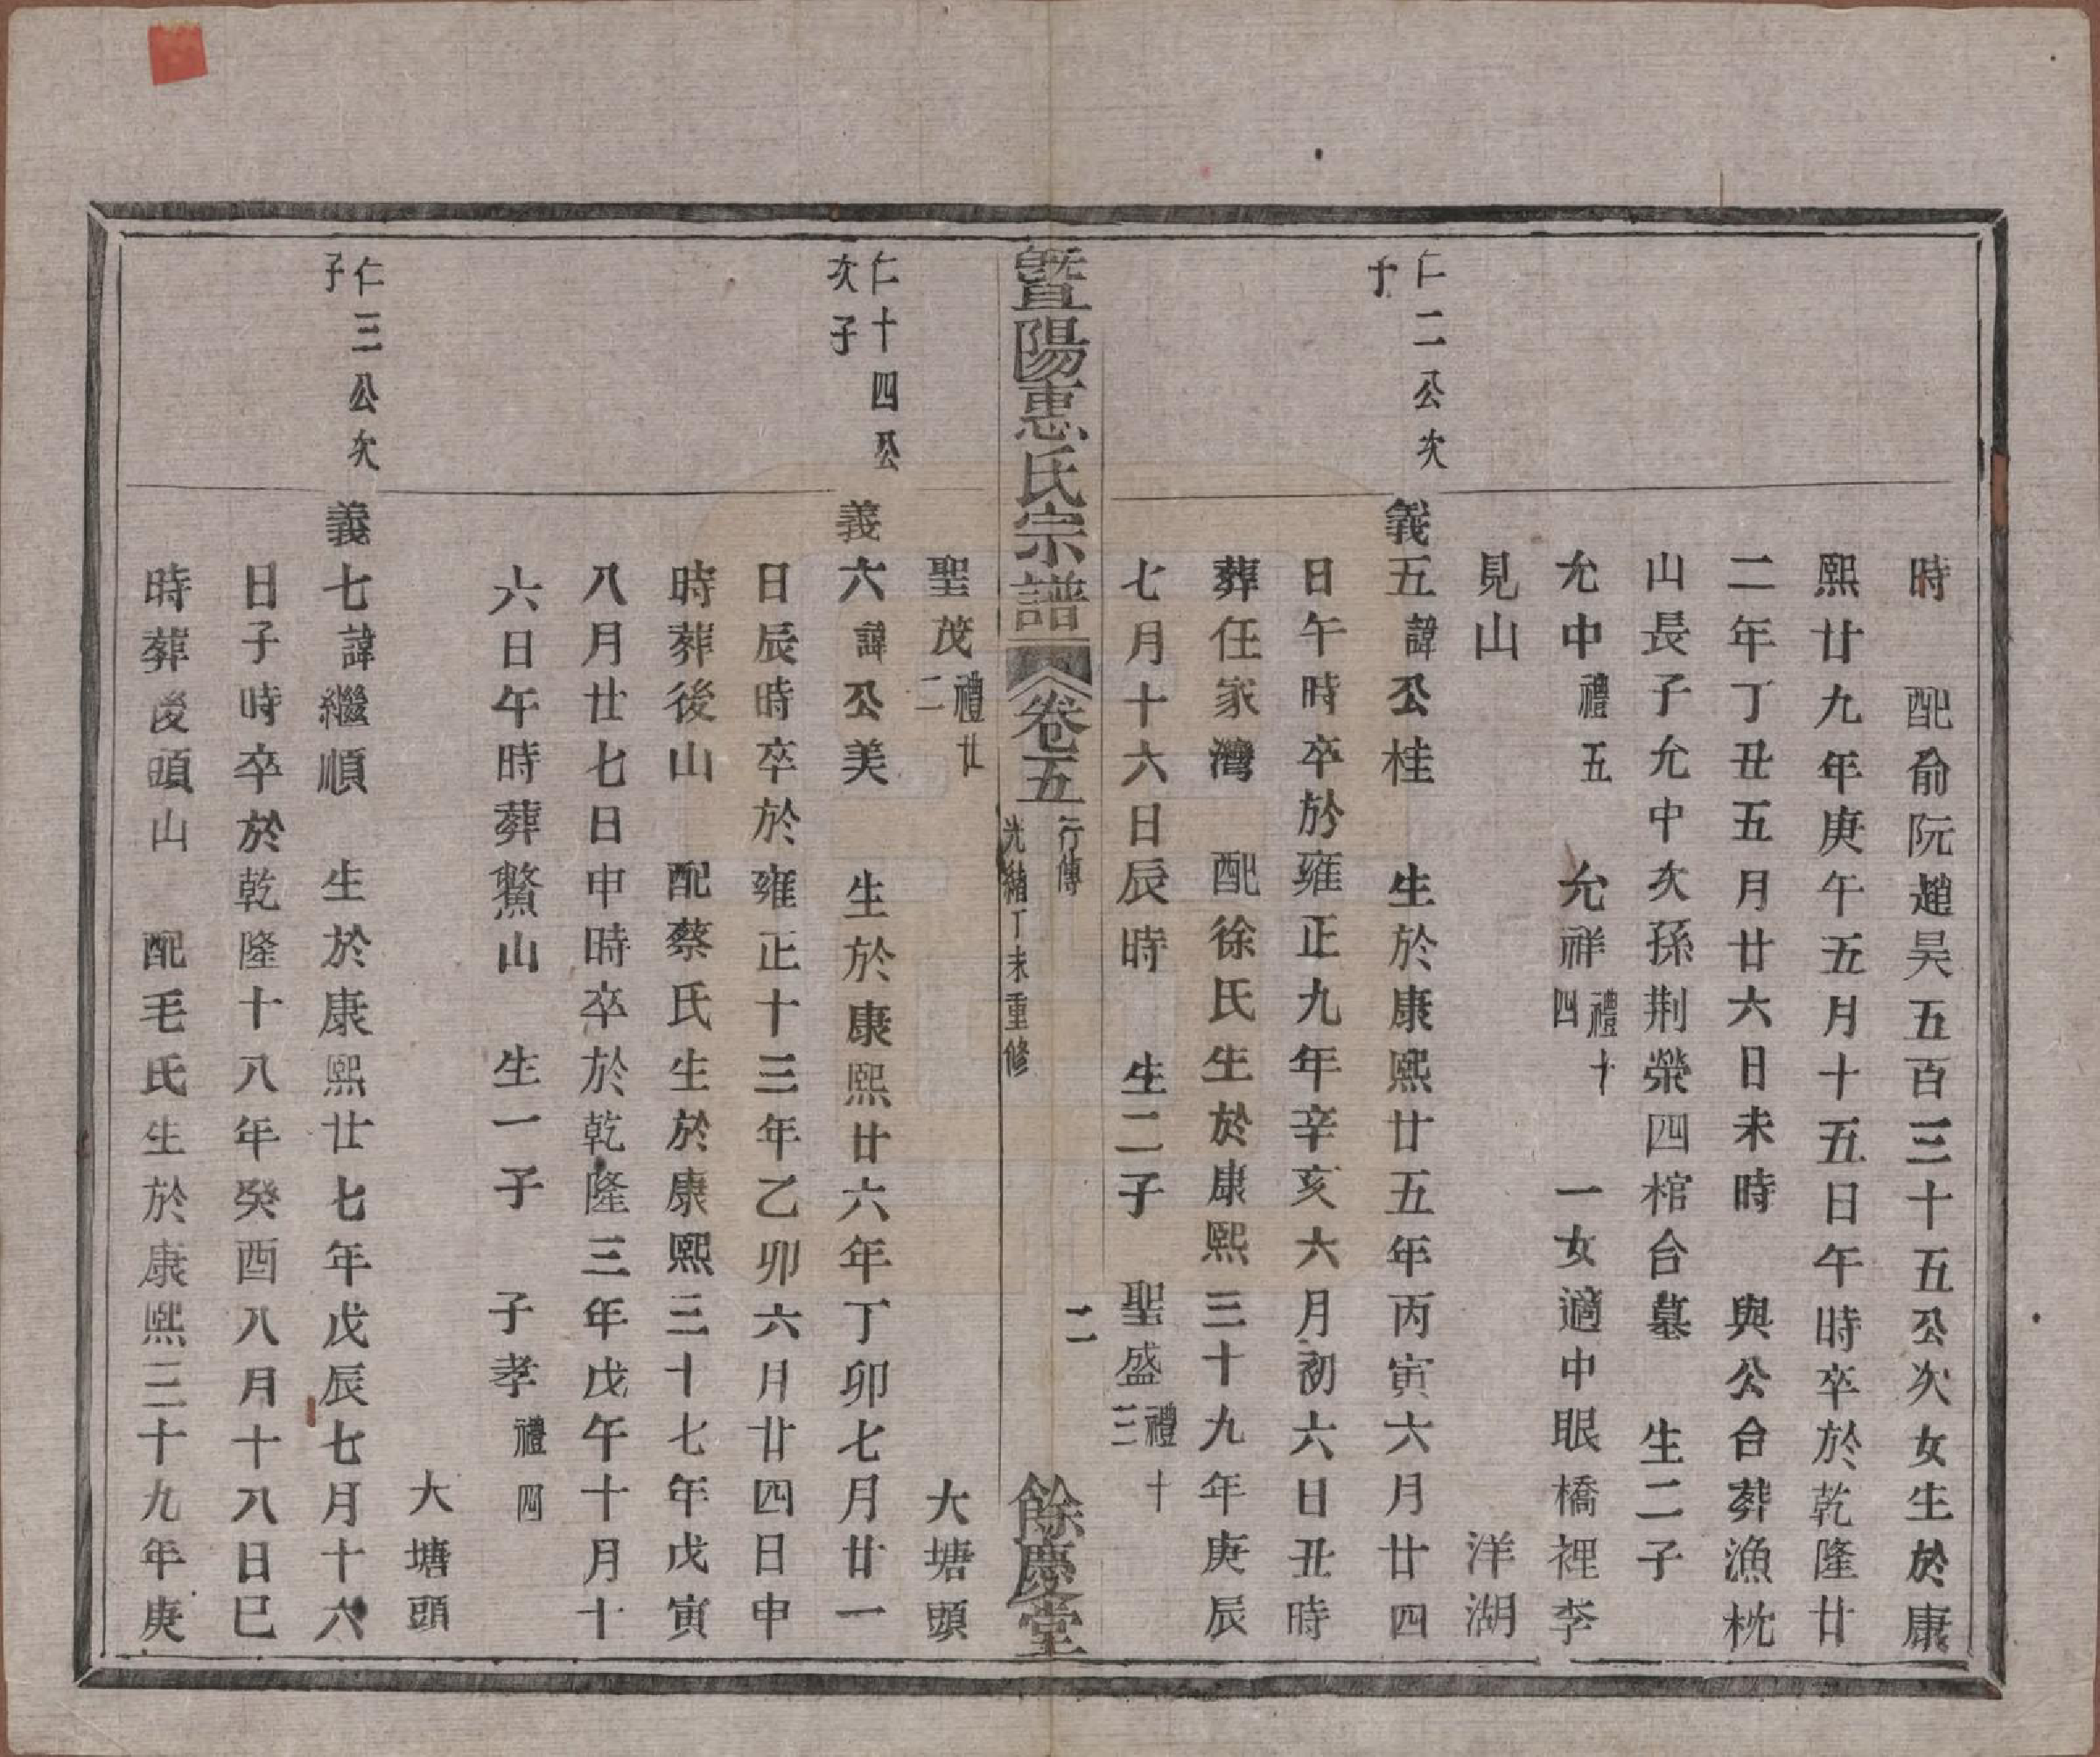 時　配俞阮趙吴五百三十五公次女生於康
熙廿九年庚午五月十五日午時卒於乾隆廿
二年丁丑五月廿六日未時　與公合葬漁枕
山長子允中次孫荆榮四棺合墓　生二子
允中禮五　允祥禮十四　一女適中眼橋裡李
見山　洋湖
仁二公次子
義五諱公桂　生於康熙廿五年丙寅六月廿四
日午時卒於雍正九年辛亥六月初六日丑時
葬任家灣　配徐氏生於康熙三十九年庚辰
七月十六日辰時　生二子　聖盛禮十三
暨陽惠氏宗譜　卷五　行傳　光緒丁未重修　二　餘慶堂
聖茂禮廿二　大塘頭
仁十四公次子
義六諱公美　生於康熙廿六年丁卯七月廿一
日辰時卒於雍正十三年乙卯六月廿四日申
時葬後山　配蔡氏生於康熙三十七年戊寅
八月廿七日申時卒於乾隆三年戊午十月十
六日午時葬鰲山　生一子　子孝禮四
大塘頭
仁三公次子
義七諱繼順　生於康熙廿七年戊辰七月十六
日子時卒於乾隆十八年癸酉八月十八日巳
時葬後頭山　配毛氏生於康熙三十九年庚